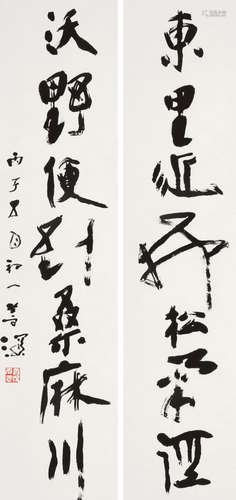 東里近松徑
沃野便到桑麻川
丙子五月初一